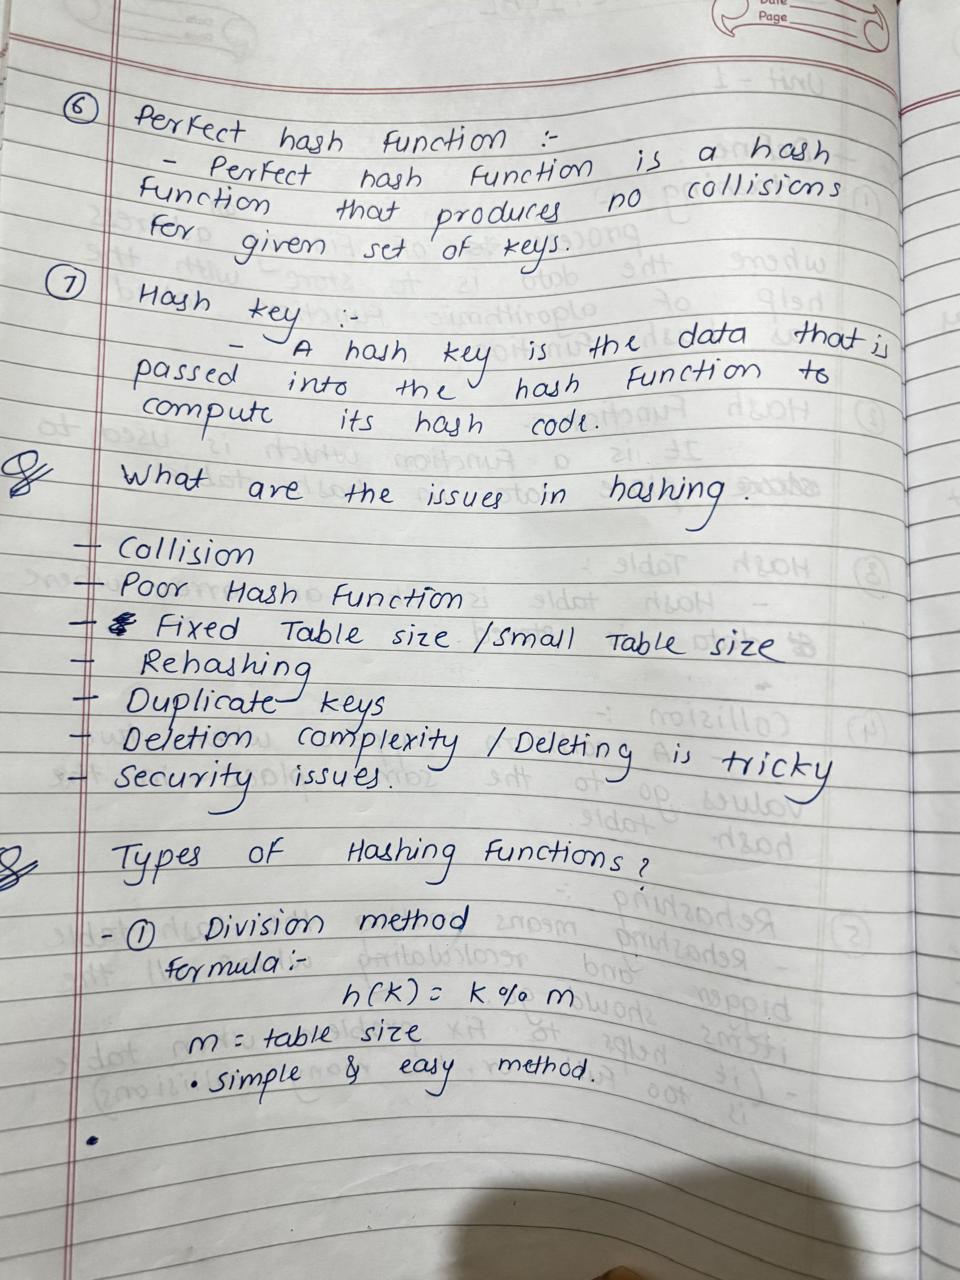 Date
Page
6 Perfect hash function :-
- Perfect hash function is a hash
function that produces no collisions
for given set of keys.
7 Hash key :-
- A hash key is the data that is
passed into the hash function to
compute its hash code.
Q What are the issues in hashing.
- Collision
- Poor Hash Function
- Fixed Table size / small Table size
- Rehashing
- Duplicate keys
- Deletion complexity / Deleting is tricky
- Security issues.
Q Types of Hashing functions?
- 1 Division method
formula :-
h(K) = K % m
m = table size
• simple & easy method.